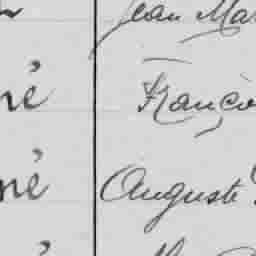 Jean Ma
né Franço
né Auguste